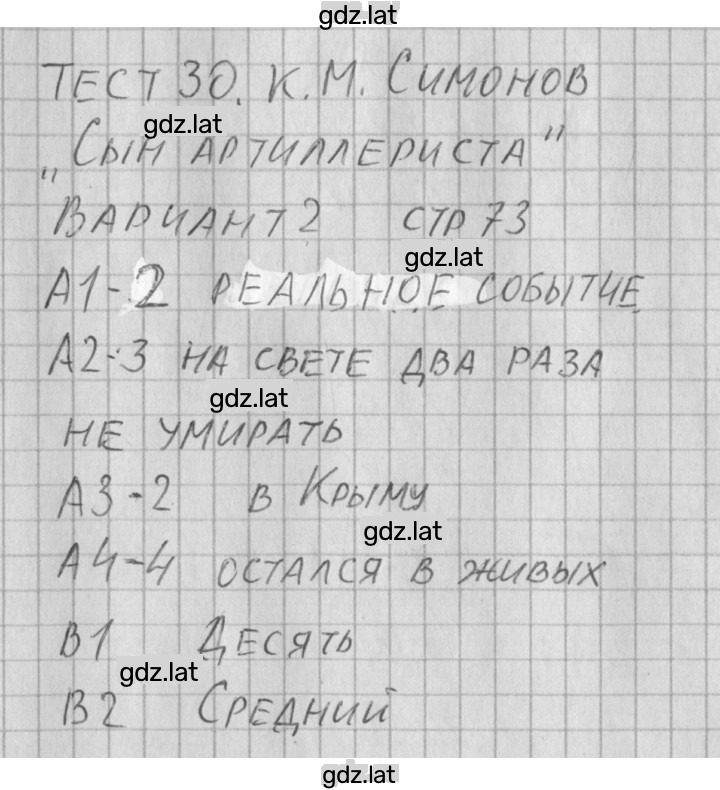 gdz.lat
Тест 30. К.М. Симонов
gdz.lat
„Сын артиллериста"
Вариант 2 стр 73
gdz.lat
А1-2 реальное событие
А2-3 на свете два раза
gdz.lat
не умирать
А3-2 в Крыму
gdz.lat
А4-4 остался в живых
В1 Десять
gdz.lat
В2 Средний
gdz.lat